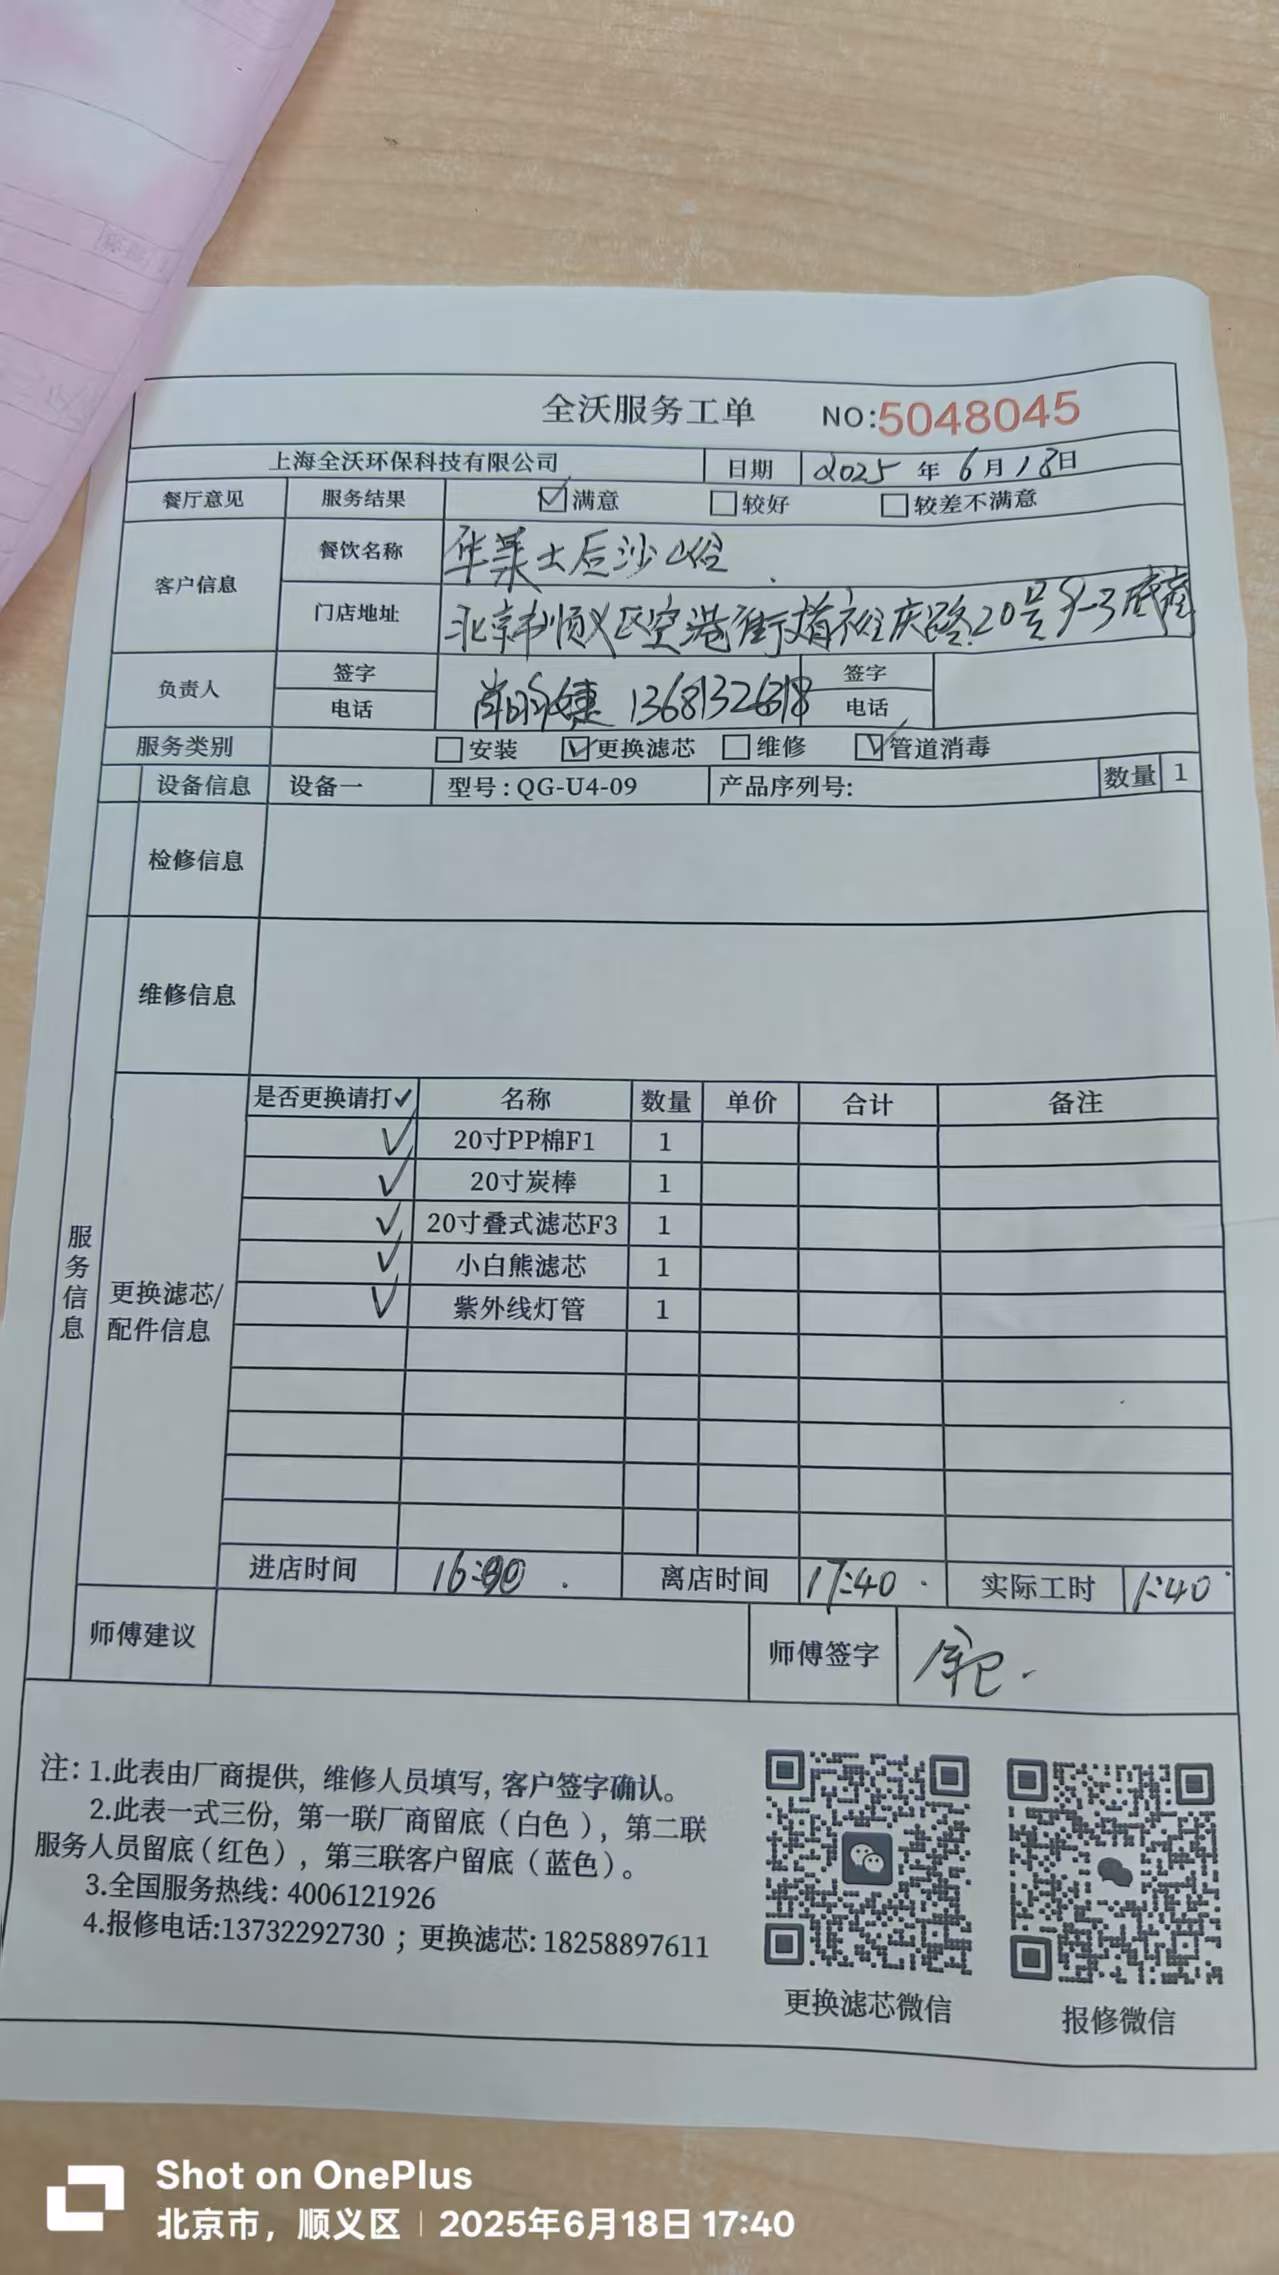 全沃服务工单 NO:5048045
上海全沃环保科技有限公司 日期 2025年6月18日
餐厅意见 服务结果 ☑满意 □较好 □较差不满意
客户信息 餐饮名称 华莱士后沙峪
门店地址 北京市顺义区空港街道裕庆路20号9-3底商
负责人 签字 签字
电话 电话
服务类别 □安装 ☑更换滤芯 □维修 ☑管道消毒
设备信息 设备一 型号:QG-U4-09 产品序列号: 数量 1
检修信息
维修信息
服务信息
更换滤芯/配件信息
是否更换请打✓ 名称 数量 单价 合计 备注
✓ 20寸PP棉F1 1
✓ 20寸炭棒 1
✓ 20寸叠式滤芯F3 1
✓ 小白熊滤芯 1
✓ 紫外线灯管 1
进店时间 16:00 离店时间 17:40 实际工时 1:40
师傅建议 师傅签字
注: 1.此表由厂商提供, 维修人员填写, 客户签字确认。
2.此表一式三份, 第一联厂商留底（白色）, 第二联
服务人员留底（红色）, 第三联客户留底（蓝色）。
3.全国服务热线: 4006121926
4.报修电话:13732292730 ; 更换滤芯: 18258897611
更换滤芯微信 报修微信
Shot on OnePlus
北京市，顺义区 | 2025年6月18日 17:40